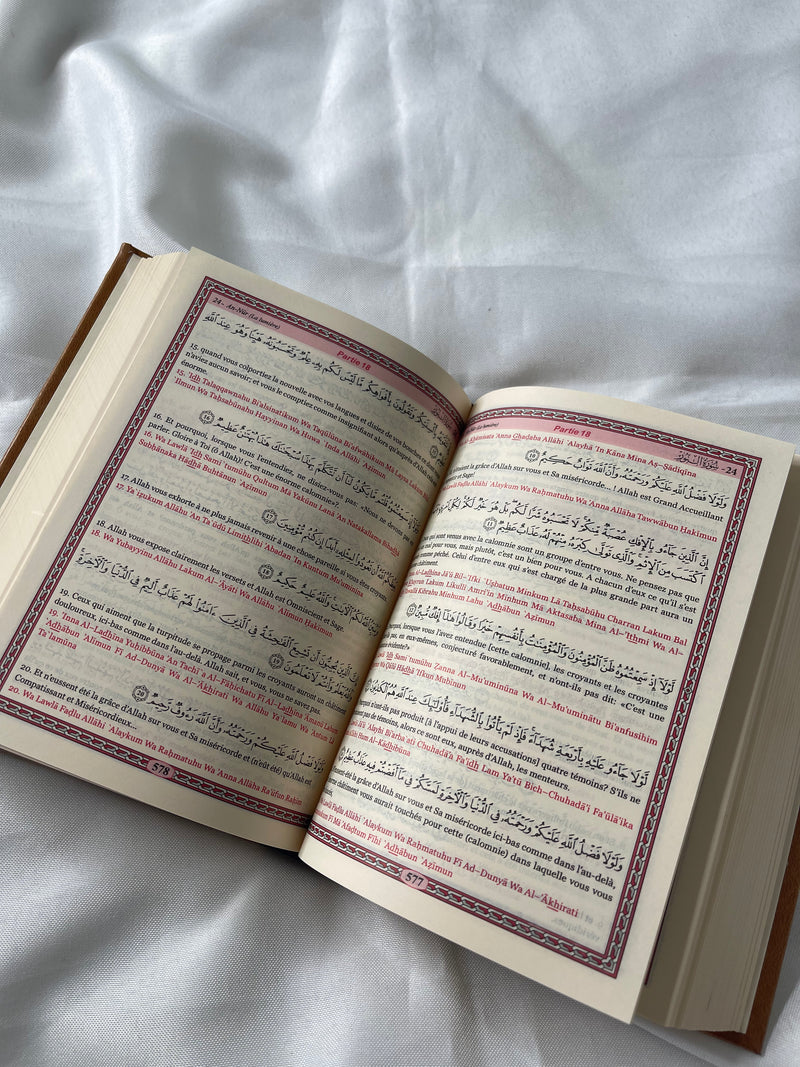 Partie 18
سورة النور -24
Khāmisata 'Anna Ghađaba Allāhi `Alayhā 'In Kāna Mina Aş-Şādiqīna
وَلَوْلَا فَضْلُ اللَّهِ عَلَيْكُمْ وَرَحْمَتُهُ وَأَنَّ اللَّهَ تَوَّابٌ حَكِيمٌ ١٠
la grâce d'Allah sur vous et Sa miséricorde... ! Allah est Grand Accueillant
et Sage!
Fađlu Allāhi `Alaykum Wa Raĥmatuhu Wa 'Anna Allāha Tawwābun Ĥakīmun
إِنَّ الَّذِينَ جَاءُو بِالْإِفْكِ عُصْبَةٌ مِنْكُمْ لَا تَحْسَبُوهُ شَرًّا لَكُمْ بَلْ هُوَ خَيْرٌ لَكُمْ لِكُلِّ امْرِئٍ مِنْهُمْ مَا
اكْتَسَبَ مِنَ الْإِثْمِ وَالَّذِي تَوَلَّى كِبْرَهُ مِنْهُمْ لَهُ عَذَابٌ عَظِيمٌ ١١
qui sont venus avec la calomnie sont un groupe d'entre vous. Ne pensez pas que
mal pour vous, mais plutôt, c'est un bien pour vous. A chacun d'eux ce qu'il s'est
comme péché. Celui d'entre eux qui s'est chargé de la plus grande part aura un
châtiment.
Al-Ladhīna Jā'ū Bil-'Ifki `Uşbatun Minkum Lā Taĥsabūhu Charran Lakum Bal
Khayrun Lakum Likulli Amri'in Minhum Mā Aktasaba Mina Al-'Ithmi Wa Al-
Tawallá Kibrahu Minhum Lahu `Adhābun `Ažīmun
لَوْلَا إِذْ سَمِعْتُمُوهُ ظَنَّ الْمُؤْمِنُونَ وَالْمُؤْمِنَاتُ بِأَنْفُسِهِمْ خَيْرًا وَقَالُوا هَذَا إِفْكٌ مُبِينٌ ١٢
lorsque vous l'avez entendue (cette calomnie), les croyants et les croyantes
pas, en eux-mêmes, conjecturé favorablement, et n'ont-ils pas dit: «C'est une
évidente?»
'Idh Sami`tumūhu Žanna Al-Mu'uminūna Wa Al-Mu'uminātu Bi'anfusihim
Wa Qālū Hādhā 'Ifkun Mubīnun
لَوْلَا جَاءُو عَلَيْهِ بِأَرْبَعَةِ شُهَدَاءَ فَإِذْ لَمْ يَأْتُوا بِالشُّهَدَاءِ فَأُولَئِكَ عِنْدَ اللَّهِ هُمُ الْكَاذِبُونَ
n'ont-ils pas produit [à l'appui de leurs accusations] quatre témoins? S'ils ne
pas de témoins, alors ce sont eux, auprès d'Allah, les menteurs.
Jā'ū `Alayhi Bi'arba`ati Chuhadā'a Fa'idh Lam Ya'tū Bich-Chuhadā'i Fa'ūlā'ika
Hum Al-Kādhibūna
وَلَوْلَا فَضْلُ اللَّهِ عَلَيْكُمْ وَرَحْمَتُهُ فِي الدُّنْيَا وَالْآخِرَةِ لَمَسَّكُمْ فِي مَا أَفَضْتُمْ فِيهِ عَذَابٌ عَظِيمٌ
été la grâce d'Allah sur vous et Sa miséricorde ici-bas comme dans l'au-delà,
châtiment vous aurait touchés pour cette (calomnie) dans laquelle vous vous
Fađlu Allāhi `Alaykum Wa Raĥmatuhu Fī Ad-Dunyā Wa Al-'Ākhirati
Fī Mā 'Afađtum Fīhi `Adhābun `Ažīmun
577
24- An-Nūr (La lumière)
Partie 18
إِذْ تَلَقَّوْنَهُ بِأَلْسِنَتِكُمْ وَتَقُولُونَ بِأَفْوَاهِكُمْ مَا لَيْسَ لَكُمْ بِهِ عِلْمٌ وَتَحْسَبُونَهُ هَيِّنًا وَهُوَ عِنْدَ اللَّهِ
15. quand vous colportiez la nouvelle avec vos langues et disiez de vos bouches
n'aviez aucun savoir; et vous le comptiez comme insignifiant alors qu'auprès d'Allah
énorme.
15. 'Idh Talaqqawnahu Bi'alsinatikum Wa Taqūlūna Bi'afwāhikum Mā Laysa Lakum
`Ilmun Wa Taĥsabūnahu Hayyinan Wa Huwa `Inda Allāhi `Ažīmun
وَلَوْلَا إِذْ سَمِعْتُمُوهُ قُلْتُمْ مَا يَكُونُ لَنَا أَنْ نَتَكَلَّمَ بِهَذَا سُبْحَانَكَ هَذَا بُهْتَانٌ عَظِيمٌ ١٦
16. Et pourquoi, lorsque vous l'entendiez, ne disiez-vous pas: «Nous ne devons pas
parler. Gloire à Toi (ô Allah)! C'est une énorme calomnie»?.
16. Wa Lawlā 'Idh Sami`tumūhu Qultum Mā Yakūnu Lanā 'An Natakallama Bihadhā
Subĥānaka Hādhā Buhtānun `Ažīmun
يَعِظُكُمُ اللَّهُ أَنْ تَعُودُوا لِمِثْلِهِ أَبَدًا إِنْ كُنْتُمْ مُؤْمِنِينَ ١٧
17. Allah vous exhorte à ne plus jamais revenir à une chose pareille si vous êtes croyants.
17. Ya`ižukum Allāhu 'An Ta`ūdū Limithlihi 'Abadan 'In Kuntum Mu'uminīna
وَيُبَيِّنُ اللَّهُ لَكُمُ الْآيَاتِ وَاللَّهُ عَلِيمٌ حَكِيمٌ ١٨
18. Allah vous expose clairement les versets et Allah est Omniscient et Sage.
18. Wa Yubayyinu Allāhu Lakum Al-'Āyāti Wa Allāhu `Alīmun Ĥakīmun
إِنَّ الَّذِينَ يُحِبُّونَ أَنْ تَشِيعَ الْفَاحِشَةُ فِي الَّذِينَ آمَنُوا لَهُمْ عَذَابٌ أَلِيمٌ فِي الدُّنْيَا وَالْآخِرَةِ
وَاللَّهُ يَعْلَمُ وَأَنْتُمْ لَا تَعْلَمُونَ ١٩
19. Ceux qui aiment que la turpitude se propage parmi les croyants auront un châtiment
douloureux, ici-bas comme dans l'au-delà. Allah sait, et vous, vous ne savez pas.
19. 'Inna Al-Ladhīna Yuĥibbūna 'An Tachī`a Al-Fāĥichatu Fī Al-Ladhīna 'Āmanū Lahum
`Adhābun 'Alīmun Fī Ad-Dunyā Wa Al-'Ākhirati Wa Allāhu Ya`lamu Wa 'Antum Lā
Ta`lamūna
وَلَوْلَا فَضْلُ اللَّهِ عَلَيْكُمْ وَرَحْمَتُهُ وَأَنَّ اللَّهَ رَءُوفٌ رَحِيمٌ ٢٠
20. Et n'eussent été la grâce d'Allah sur vous et Sa miséricorde et (n'eût été) qu'Allah est
Compatissant et Miséricordieux...
20. Wa Lawlā Fađlu Allāhi `Alaykum Wa Raĥmatuhu Wa 'Anna Allāha Ra'ūfun Raĥīm
578